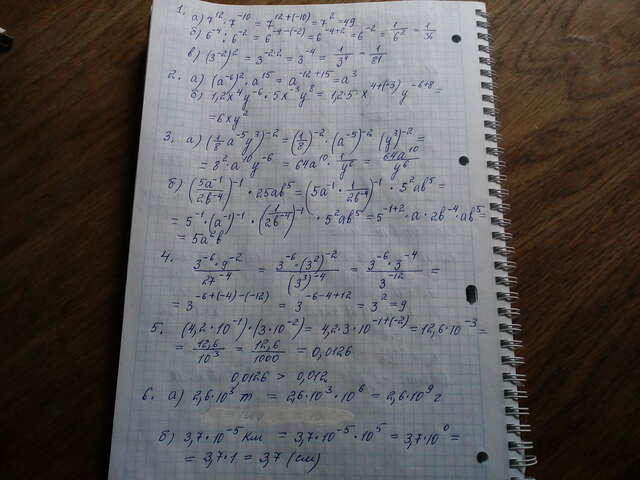 1. а) 7¹²·7⁻¹⁰ = 7¹²⁺⁽⁻¹⁰⁾ = 7² = 49
б) 6⁻⁴ : 6⁻² = 6⁻⁴⁻⁽⁻²⁾ = 6⁻⁴⁺² = 6⁻² = 1/6² = 1/36
в) (3⁻²)² = 3⁻²·² = 3⁻⁴ = 1/3⁴ = 1/81
2. а) (a⁻⁶)²·a¹⁵ = a⁻¹²⁺¹⁵ = a³
б) 1,2x⁴y⁻⁶·5x⁻³y⁸ = 1,2·5·x⁴⁺⁽⁻³⁾y⁻⁶⁺⁸ =
= 6xy²
3. а) (1/8 a⁻⁵y³)⁻² = (1/8)⁻²·(a⁻⁵)⁻²(y³)⁻² =
= 8²·a¹⁰y⁻⁶ = 64a¹⁰·1/y⁶ = 64a¹⁰/y⁶
б) (5a⁻¹/2b⁻⁴)⁻¹·25ab⁵ = (5a⁻¹·1/2b⁻⁴)⁻¹·5²ab⁵ =
= 5⁻¹·(a⁻¹)⁻¹·(1/2b⁻⁴)⁻¹·5²ab⁵ = 5⁻¹⁺²·a·2b⁻⁴·ab⁵ =
= 5a²b
4. 3⁻⁶·9⁻²/27⁻⁴ = 3⁻⁶·(3²)⁻²/(3³)⁻⁴ = 3⁻⁶·3⁻⁴/3⁻¹² =
= 3⁻⁶⁺⁽⁻⁴⁾⁻⁽⁻¹²⁾ = 3⁻⁶⁻⁴⁺¹² = 3² = 9
5. (4,2·10⁻¹)·(3·10⁻²) = 4,2·3·10⁻¹⁺⁽⁻²⁾ = 12,6·10⁻³ =
= 12,6/10³ = 12,6/1000 = 0,0126
0,0126 > 0,012
6. а) 2,6·10³ т = 2,6·10³·10⁶ = 2,6·10⁹ г
б) 3,7·10⁻⁵ км = 3,7·10⁻⁵·10⁵ = 3,7·10⁰ =
= 3,7·1 = 3,7 (см)